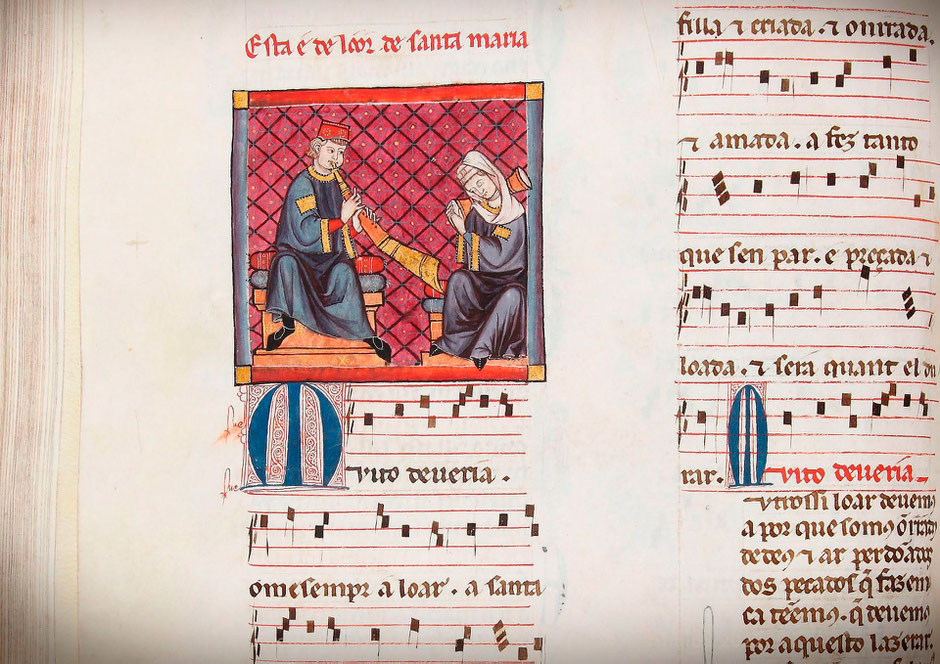 Esta é de loor de santa maria
Muito deueria .
ome sempr a loar . a santa
filla ⁊ criada . ⁊ onrrada .
⁊ amada . a fez tanto
que sen par . e preçada ⁊
loada . ⁊ sera quant el du
rar . Muito deueria
utrossi loar deuemꝯ
a por que somꝯ õrradꝯ
de deꝯ ⁊ ar perdõadꝯ
dos pecados q̃ fazem
ca tẽemꝯ . q̃ deuemꝯ
por aquesto lazerar.